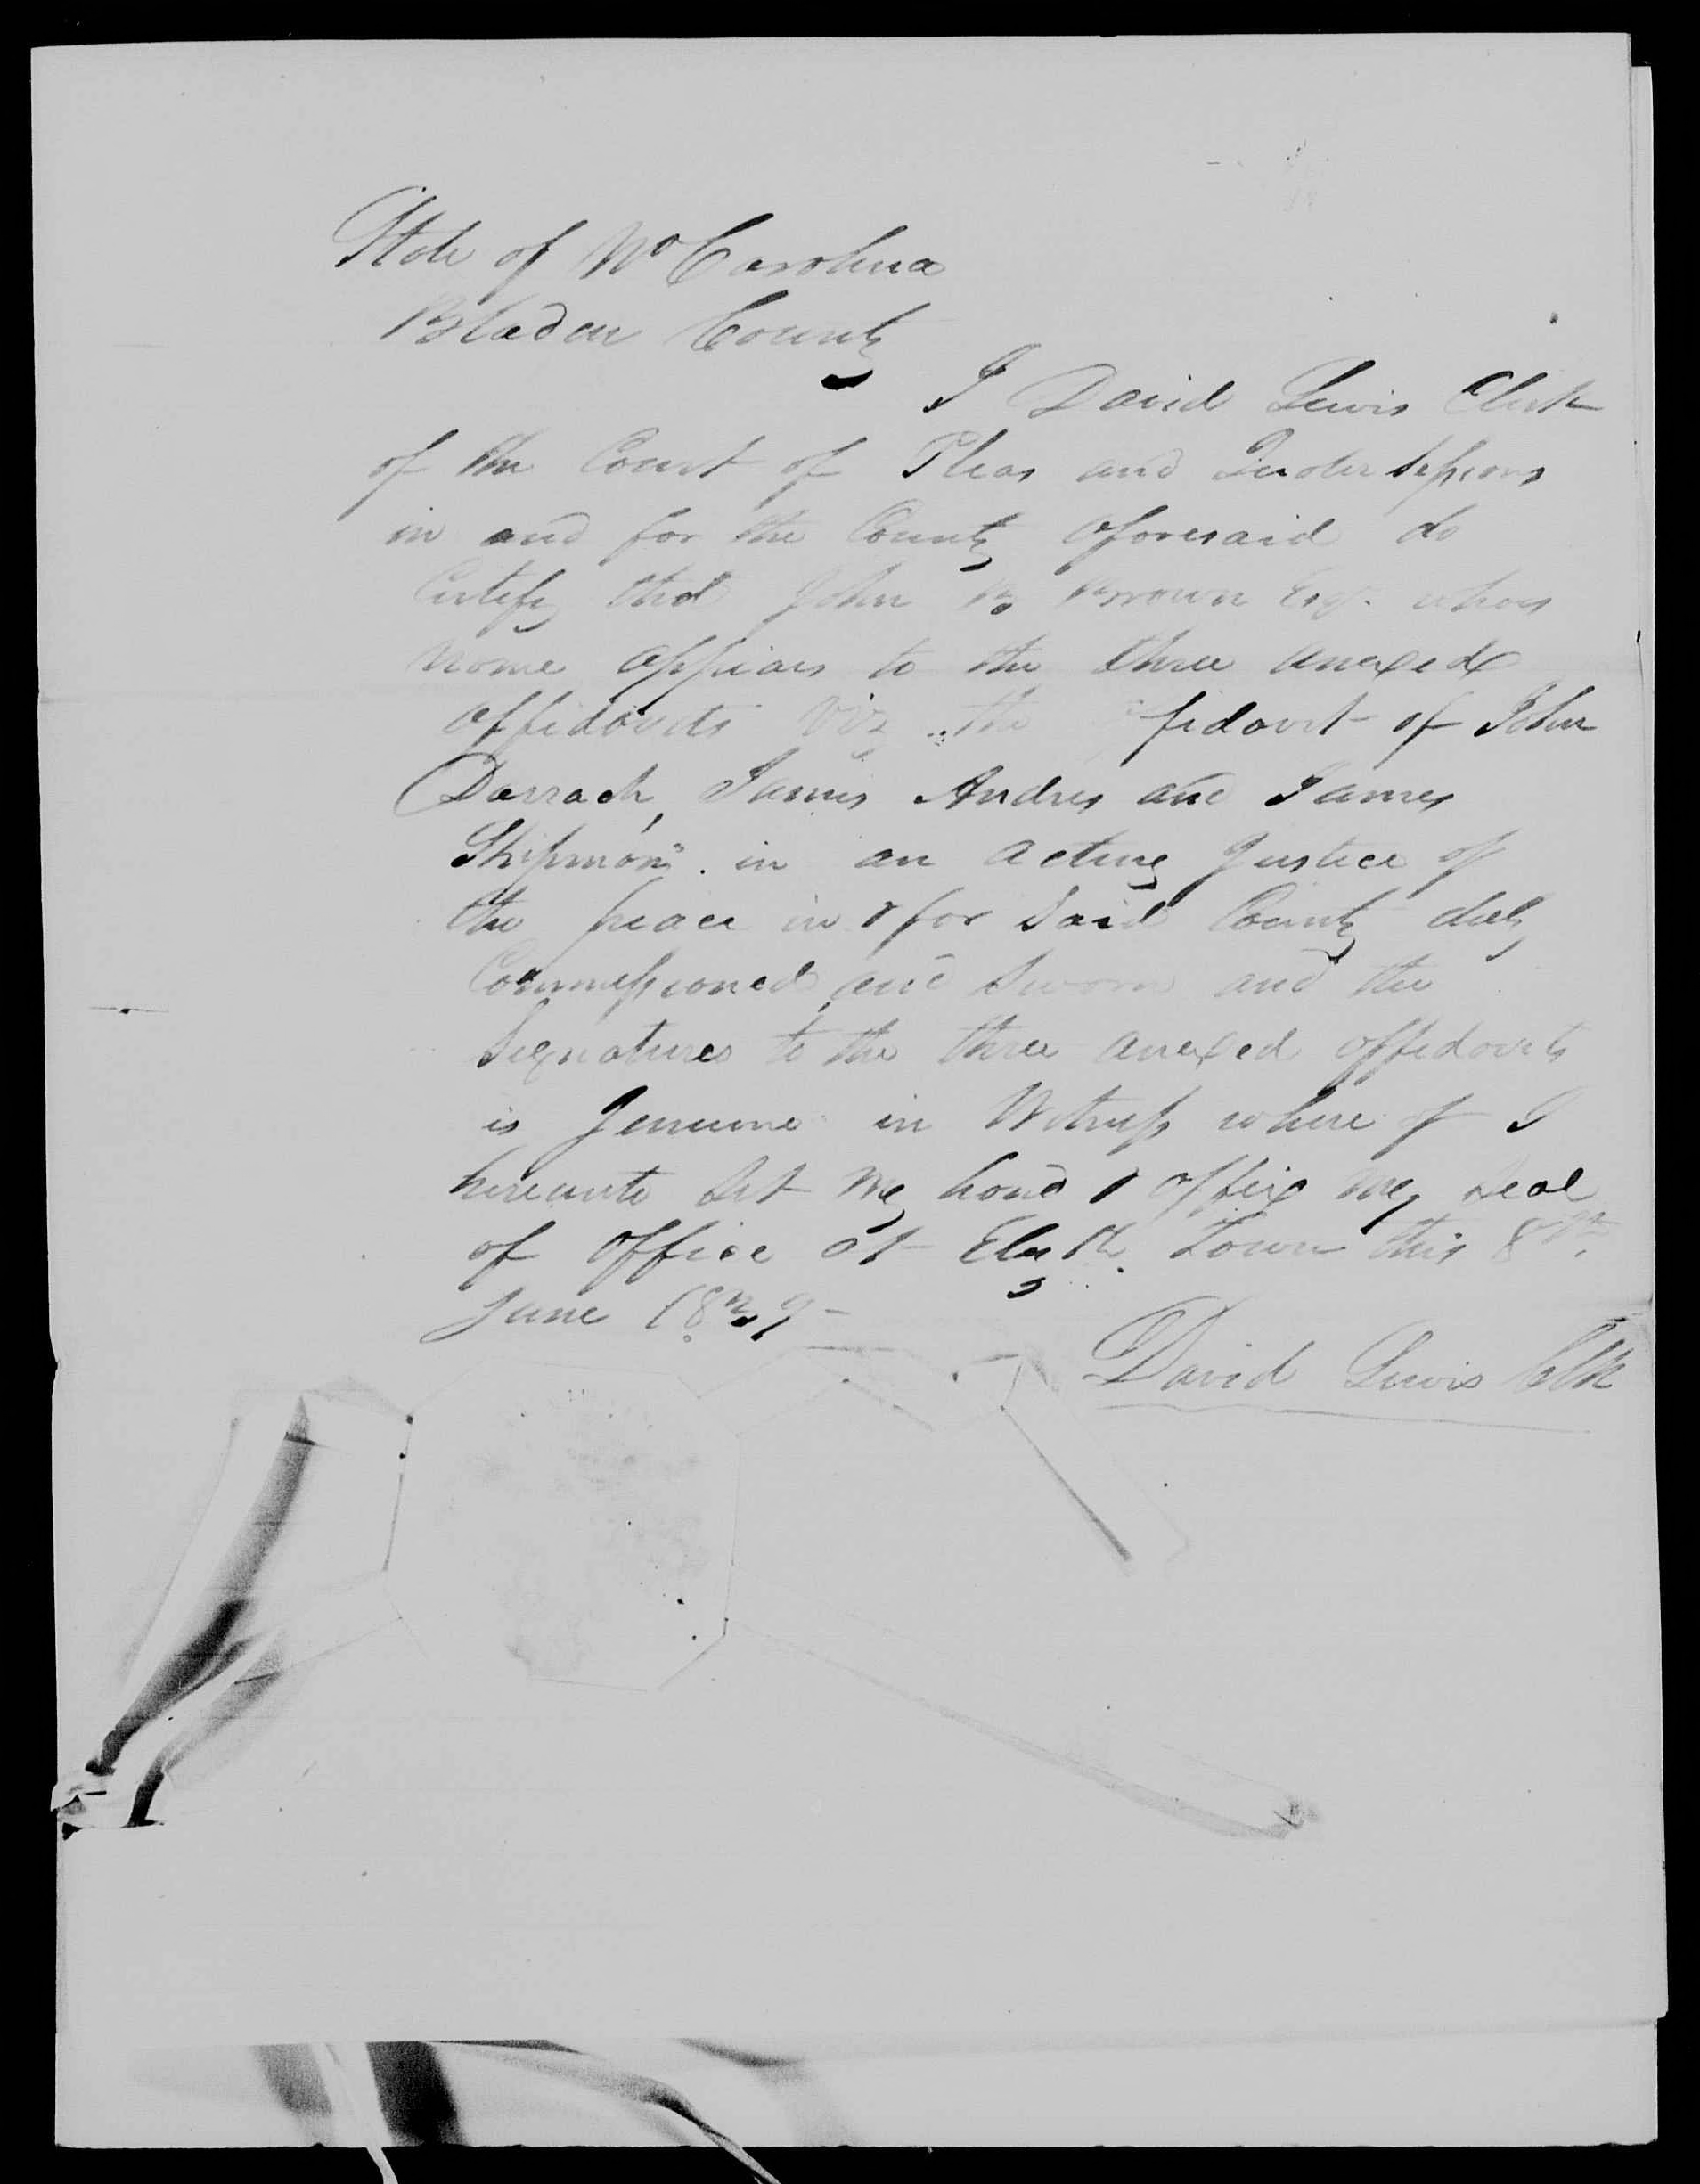 State of No Carolina
Bladen County
I David Lewis Clerk
of the Court of Pleas and Quarter Sessions
in and for the County aforesaid do
Certify that John B Brown Esq. whos
name appears to the three anexed
affidavits viz the fidavit of John
Darrach, James Andres and James
Shipman. in an acting Justice of
the peace in & for said County duly
Commissioned and Sworn and the
Signatures to the three anexed affidavits
is Genuine in Witness where of I
hereunto Set my hand & affix my seal
of office at Elizth. Town this 8th
June
David Lewis Clk